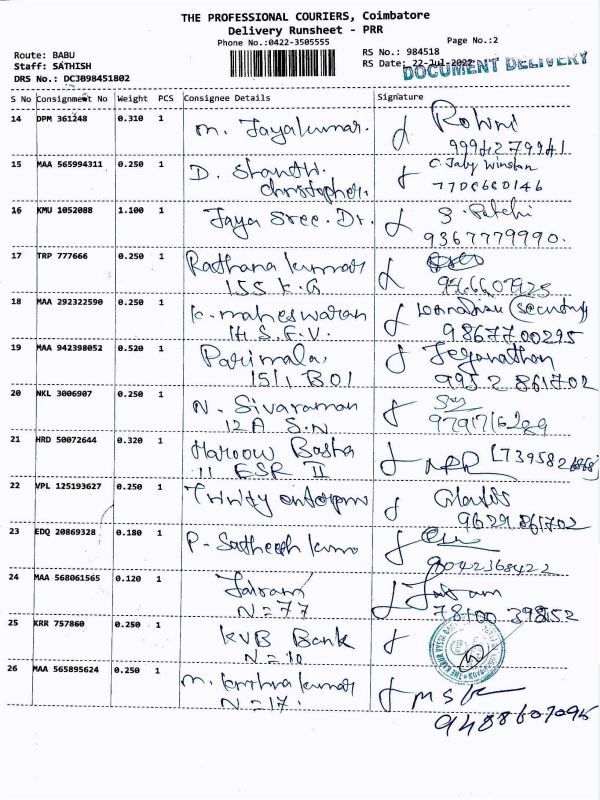 THE PROFESSIONAL COURIERS, Coimbatore
Delivery Runsheet - PRR
Phone No.:0422-3505555
Page No.:2
Route: BABU
RS No.: 984518
Staff: SATHISH
RS Date: 22-Jul-2022
DOCUMENT DELIVERY
DRS No.: DCJB98451802
S No Consignment No Weight PCS Consignee Details Signature
14 DPM 361248 0.310 1 M. Jayakumar. Rohini
9994279941
15 MAA 565994311 0.250 1 D. Shanthi. C. Jaby Winston
christopher. 7708660146
16 KMU 1052088 1.100 1 Jaya Sree. Dr. S. Petchi
9367779990.
17 TRP 777666 0.250 1 Rathana kumar
155 K.G
18 MAA 292322590 0.250 1 K. maheswaran (Security)
14 S.F.V. 98677 00295
19 MAA 942398052 0.520 1 Parimala. Jeganathan
15/1 B01 9952 861702
20 NKL 3006907 0.250 1 N. Sivaraman
12A S.N
21 HRD 50072644 0.320 1 Haroow Basha
11 ESR II
22 VPL 125193627 0.250 1 Trinity enterprise
9629 861702
23 EDQ 20869328 0.180 1 P. Satheesh kumar
9042368422
24 MAA 568061565 0.120 1 Jairam Jairam
N=77 78100 39852
25 KRR 757860 0.250 1 KVB Bank
N=10
26 MAA 565895624 0.250 1 M. krithna kumar
N=17.
9488607096